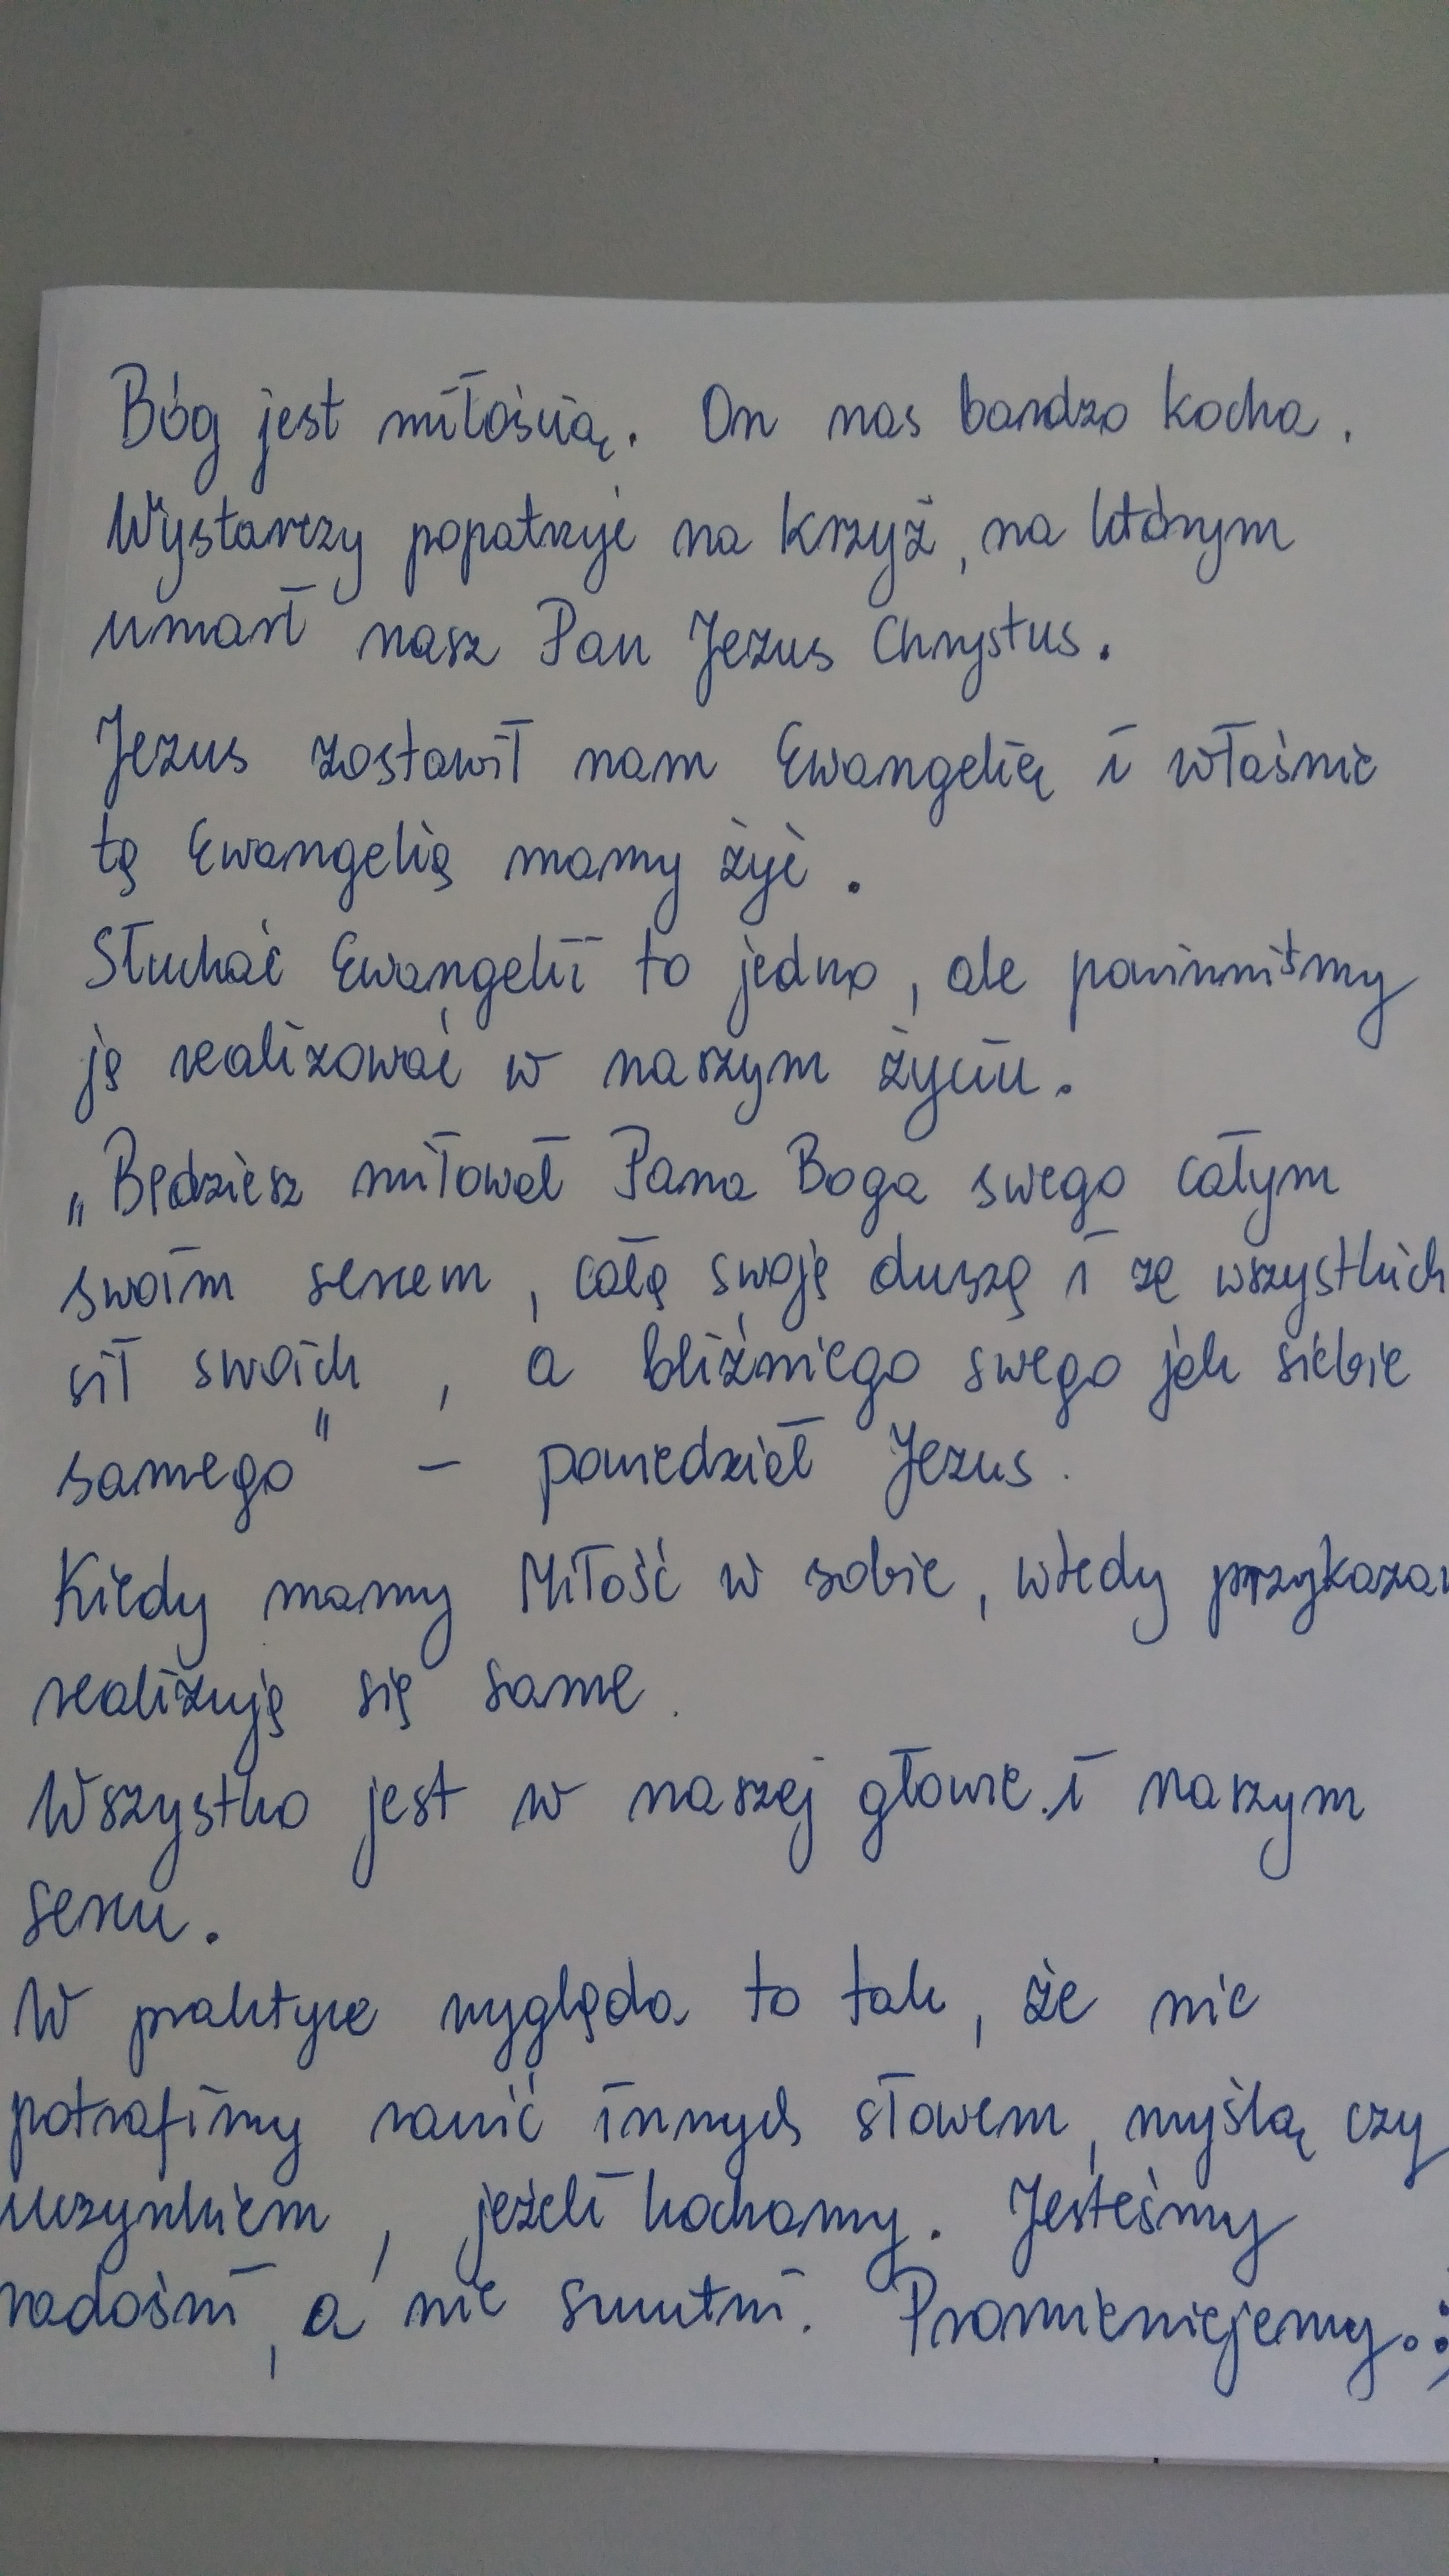 Bóg jest miłością. On nas bardzo kocha.
Wystarczy popatrzyć na krzyż, na którym
umarł nasz Pan Jezus Chrystus.
Jezus zostawił nam Ewangelię i właśnie
tą Ewangelią mamy żyć.
Słuchać Ewangelii to jedno, ale powinniśmy
ją realizować w naszym życiu.
„Będziesz miłował Pana Boga swego całym
swoim sercem, całą swoją duszą i ze wszystkich
sił swoich, a bliźniego swego jak siebie
samego" - powiedział Jezus.
Kiedy mamy Miłość w sobie, wtedy
realizują się same.
Wszystko jest w naszej głowie i naszym
sercu.
W praktyce wygląda to tak, że nie
potrafimy ranić innych słowem, myślą czy
uczynkiem, jeżeli kochamy. Jesteśmy
radośni, a nie smutni. Promieniejemy.